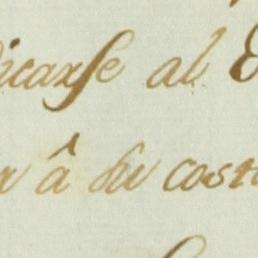 dicarse al
â su costa